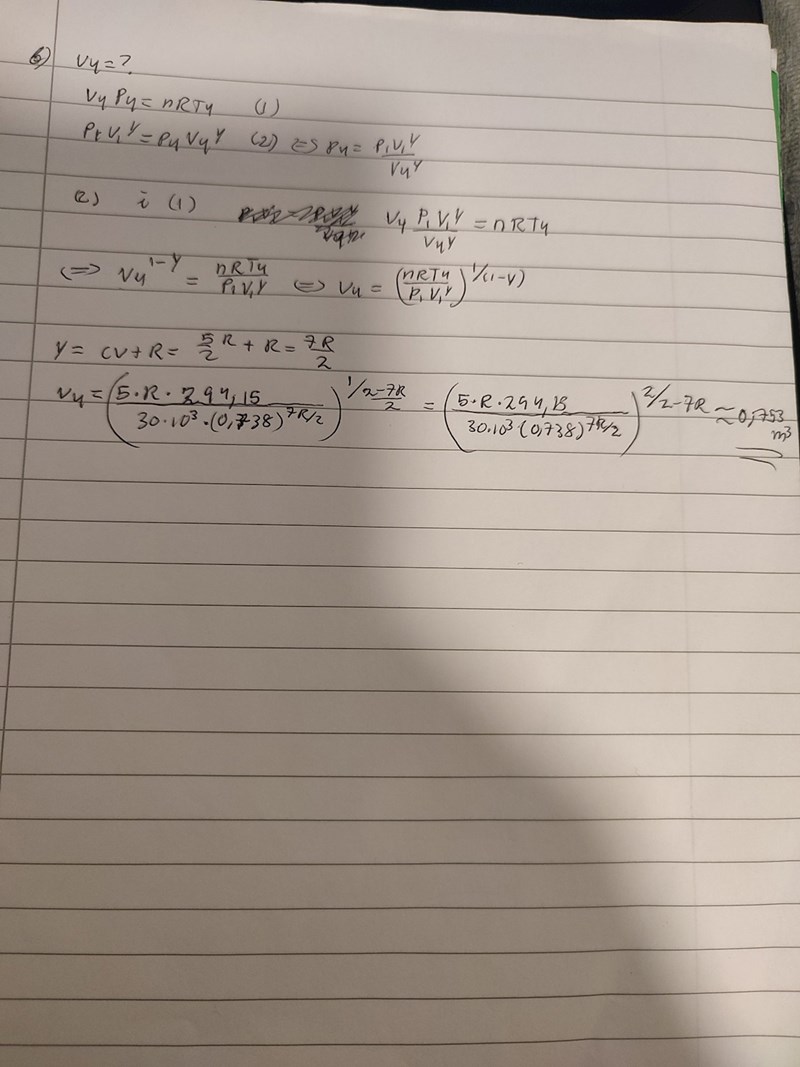 6) V4=?
V4 P4 = nRT4 (1)
P1 V1^γ = P4 V4^γ (2) <=> P4 = P1V1^γ / V4^γ
(2) i (1) V4 P1 V1^γ / V4^γ = nRT4
<=> V4^1-γ = nRT4 / P1V1^γ <=> V4 = (nRT4 / P1V1^γ)^1/(1-γ)
γ = CV+R = 5/2 R + R = 7R/2
V4 = (5·R·294,15 / 30·10³·(0,738)^7R/2)^1/2-7R/2 = (5·R·294,15 / 30·10³·(0,738)^7R/2)^2/2-7R ≈ 0,753 m³